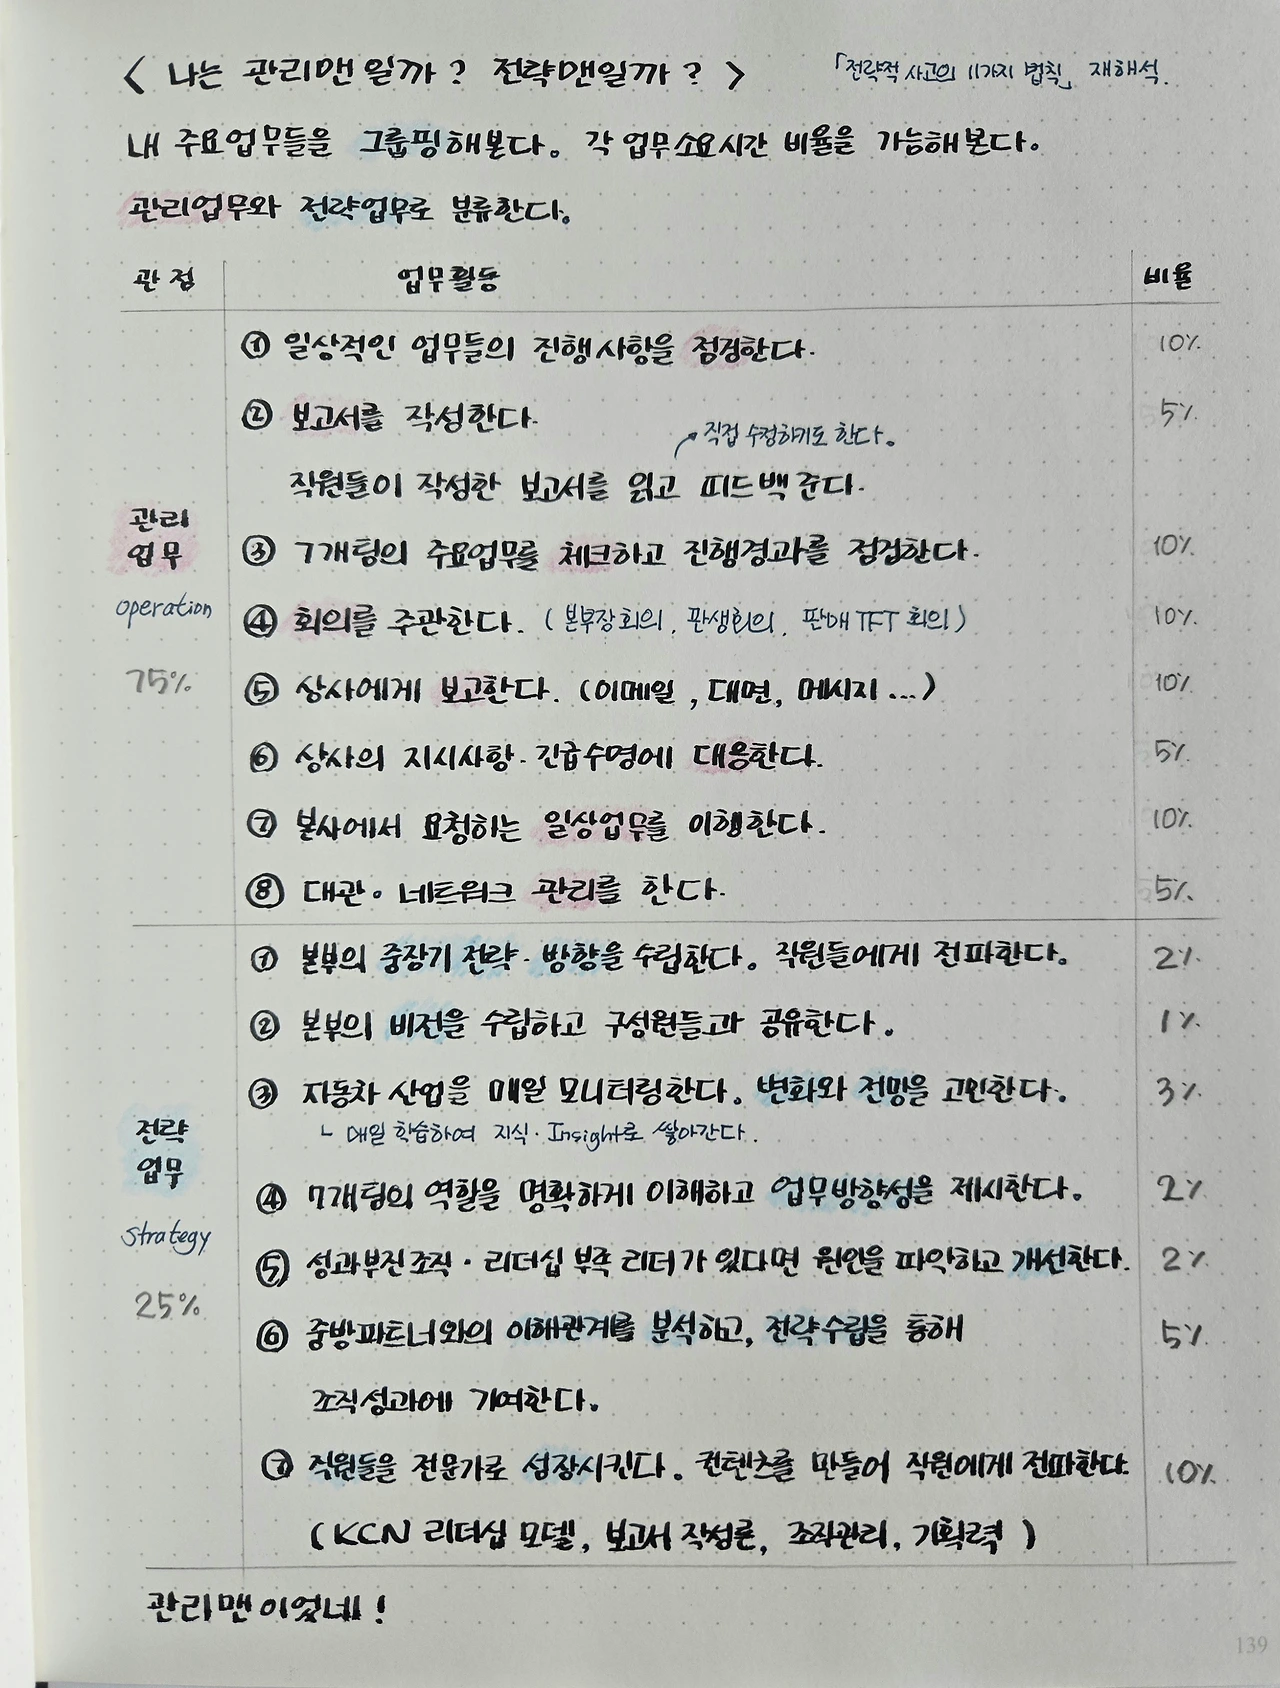 < 나는 관리맨일까? 전략맨일까? >
「전략적 사고의 11가지 법칙」 재해석.
내 주요업무들을 그룹핑해본다. 각 업무소요시간 비율을 가늠해본다.
관리업무와 전략업무로 분류한다.
관점 업무활동 비율
① 일상적인 업무들의 진행사항을 점검한다. 10%
② 보고서를 작성한다. 5%
직접 수정하기도 한다.
직원들이 작성한 보고서를 읽고 피드백 준다.
관리
업무
operation
75%
③ 7개팀의 주요업무를 체크하고 진행경과를 점검한다. 10%
④ 회의를 주관한다. (본부장회의, 판생회의, 판매TFT 회의) 10%
⑤ 상사에게 보고한다. (이메일, 대면, 메시지...) 10%
⑥ 상사의 지시사항·긴급수명에 대응한다. 5%
⑦ 본사에서 요청하는 일상업무를 이행한다. 10%
⑧ 대관·네트워크 관리를 한다. 5%
① 본부의 중장기 전략·방향을 수립한다. 직원들에게 전파한다. 2%
② 본부의 비전을 수립하고 구성원들과 공유한다. 1%
③ 자동차 산업을 매일 모니터링한다. 변화와 전망을 고민한다. 3%
ㄴ 매일 학습하여 지식·Insight로 쌓아간다.
전략
업무
strategy
25%
④ 7개팀의 역할을 명확하게 이해하고 업무방향성을 제시한다. 2%
⑤ 성과부진조직·리더십 부족 리더가 있다면 원인을 파악하고 개선한다. 2%
⑥ 중방파트너와의 이해관계를 분석하고, 전략수립을 통해 5%
조직성과에 기여한다.
⑦ 직원들을 전문가로 성장시킨다. 컨텐츠를 만들어 직원에게 전파한다. 10%
(KCN 리더십 모델, 보고서 작성론, 조직관리, 기획력)
관리맨이었네!
139